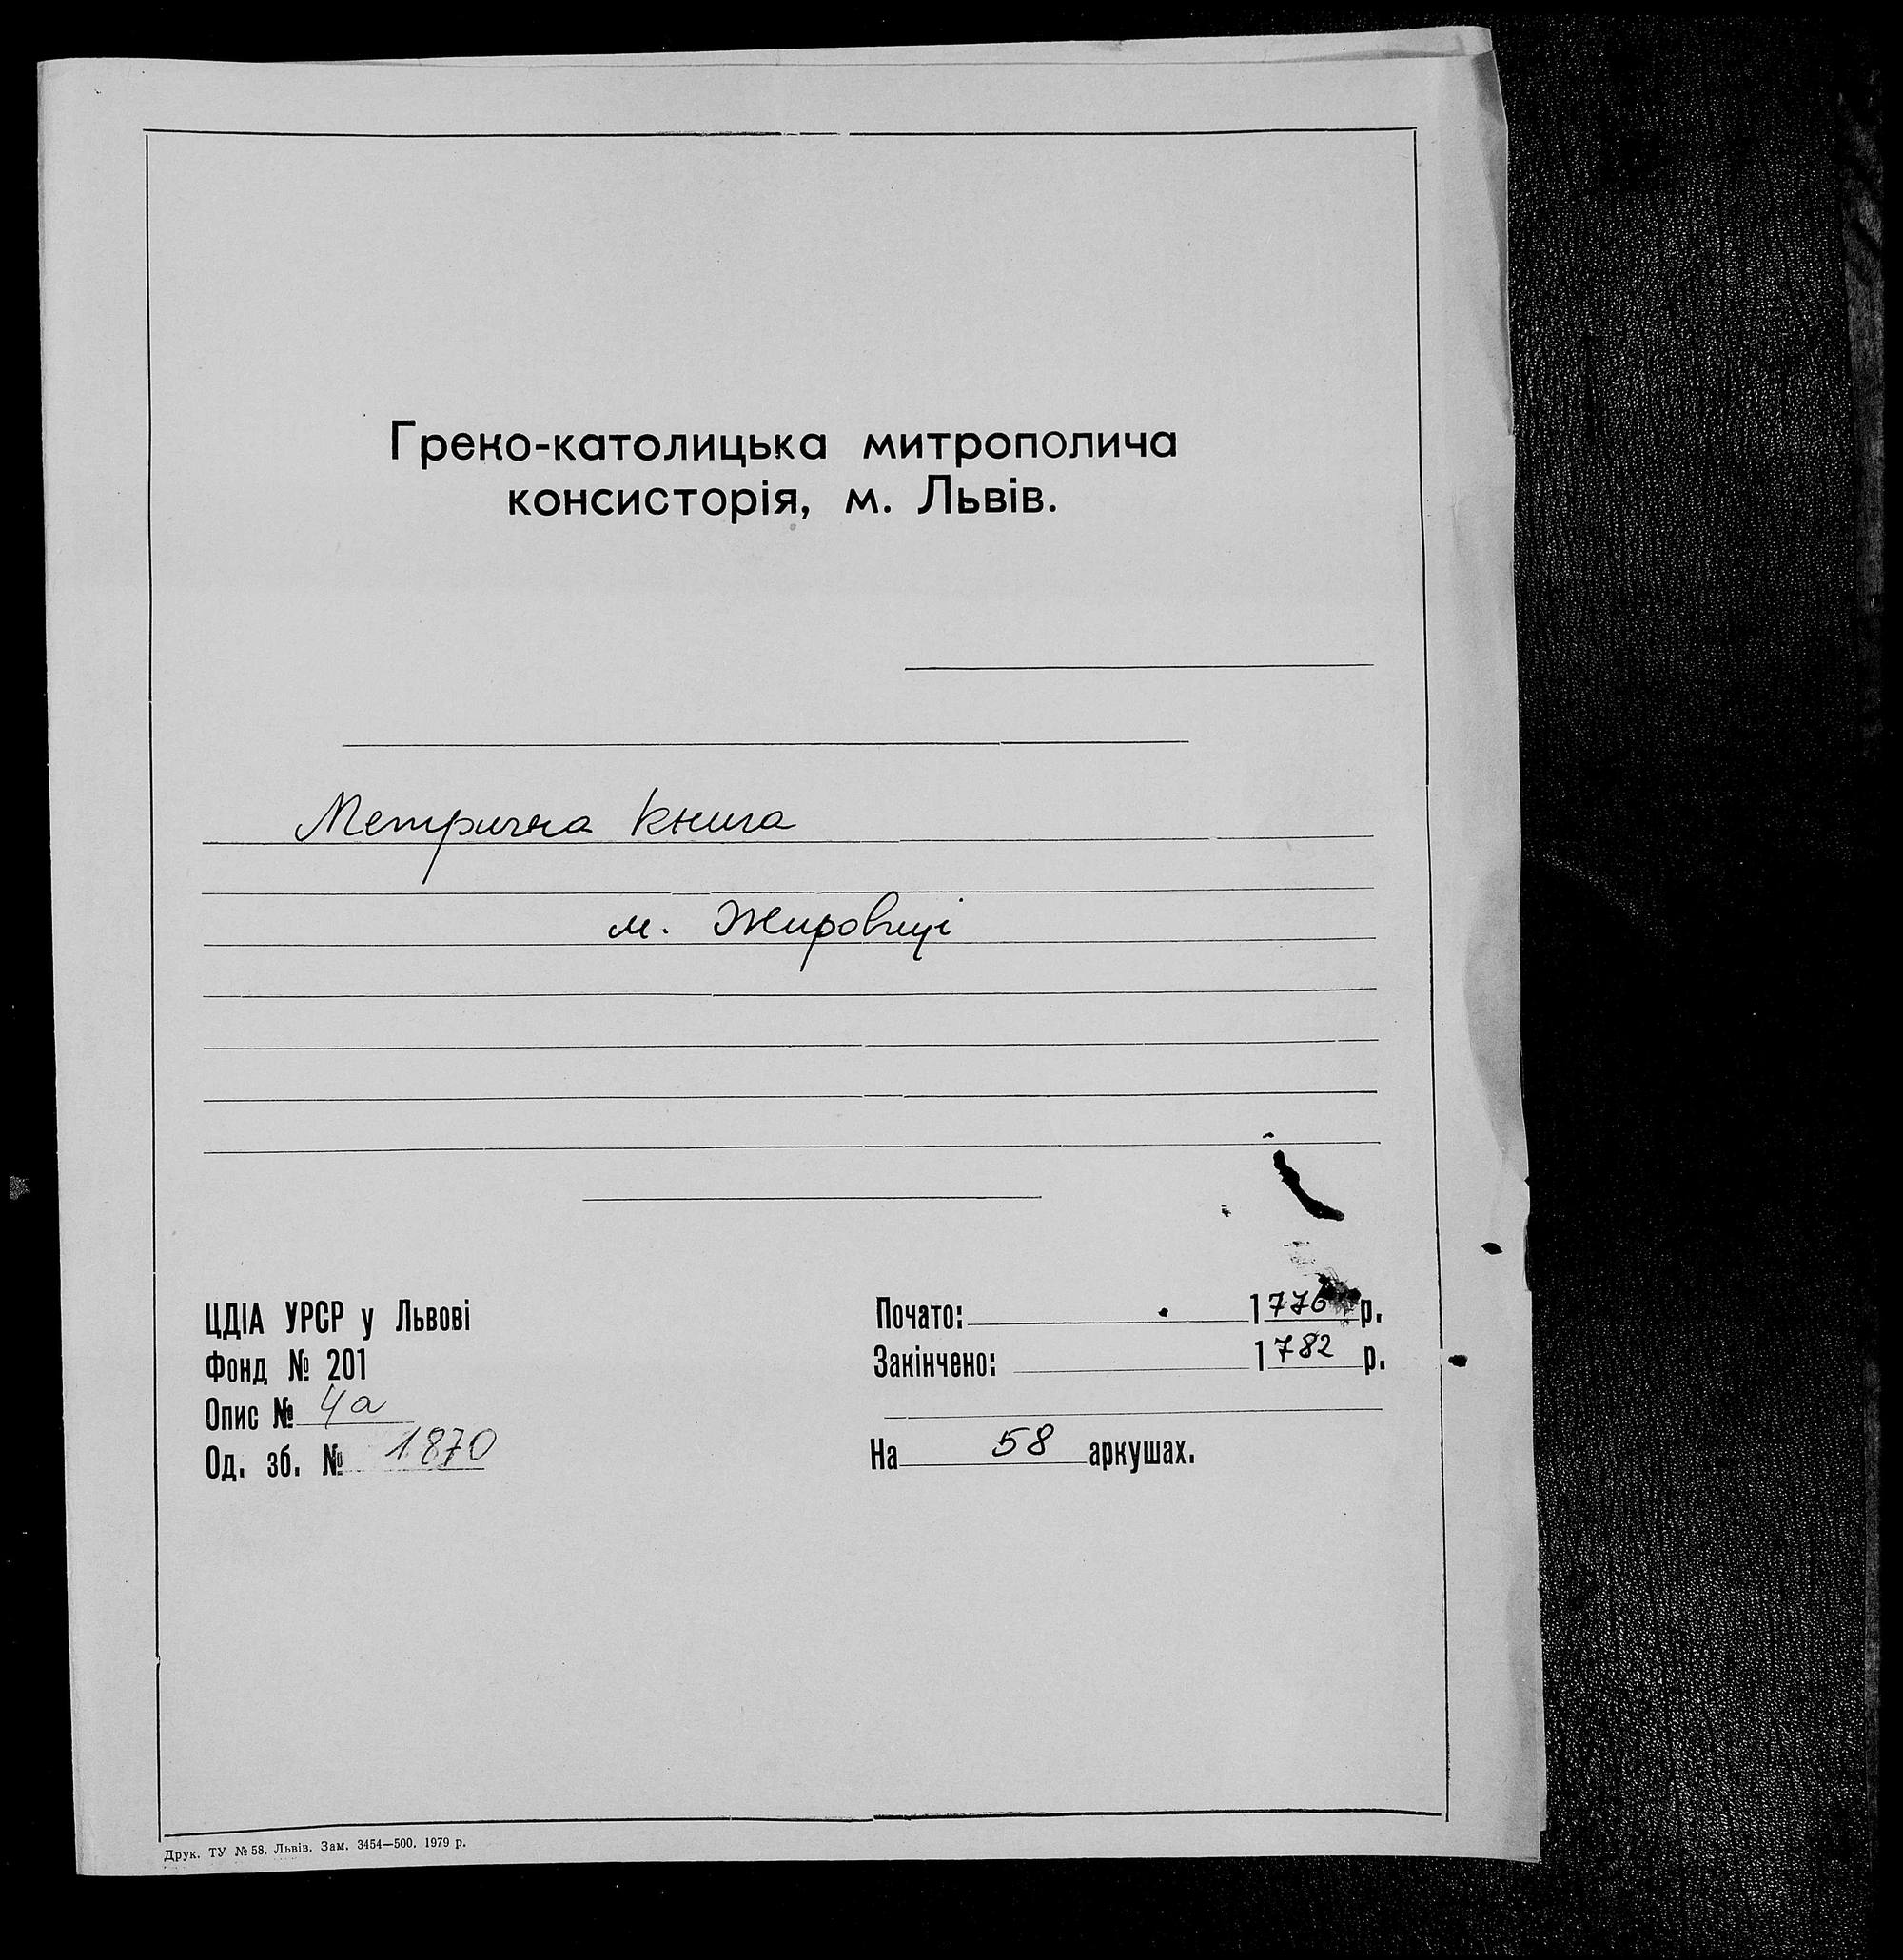 Греко-католицька митрополича
консисторія, м. Львів.
Метрична книга
м. Жировиці
ЦДІА УРСР у Львові
Фонд № 201
Опис № 4а
Од. зб. № 1870
Почато: 1776 р.
Закінчено: 1782 р.
На 58 аркушах.
Друк. ТУ № 58. Львів. Зам. 3454—500. 1979 р.